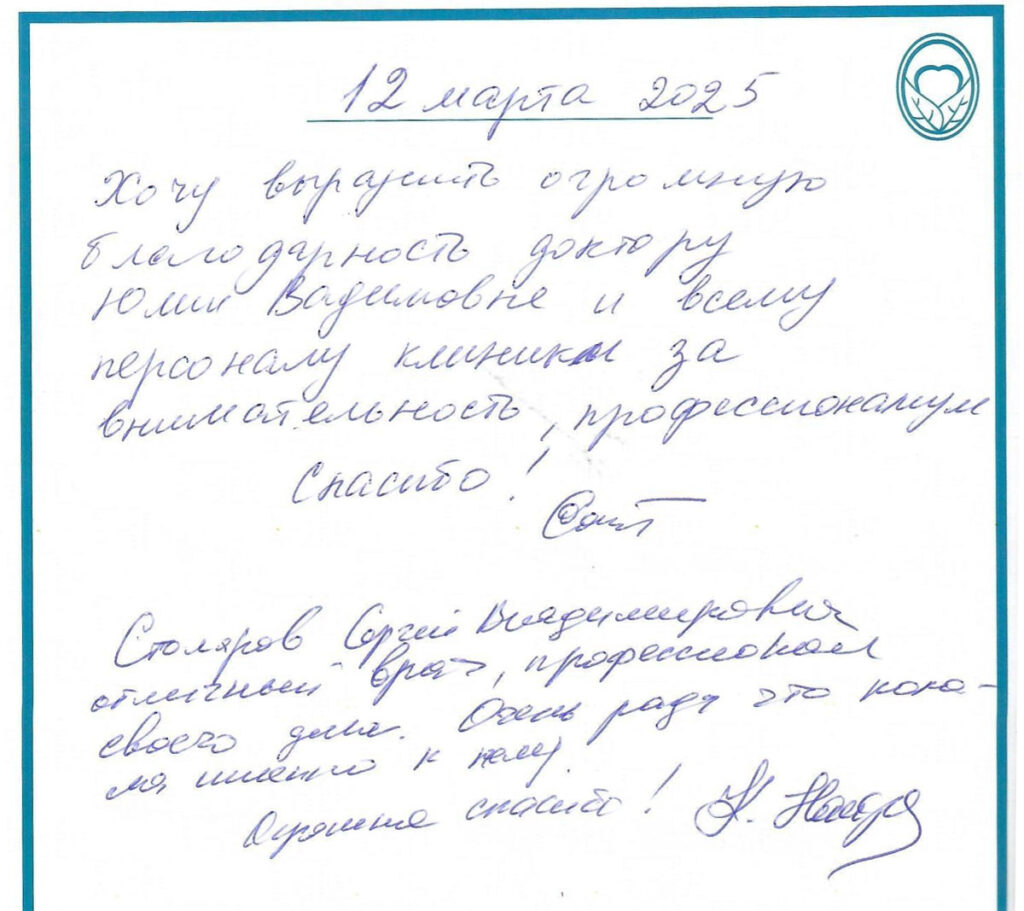 12 марта 2025
Хочу выразить огромную
благодарность доктору
Юлии Вадимовне и всему
персоналу клиники за
внимательность, профессионализм
Спасибо!
Столяров Сергей Владимирович
отличный врач, профессионал
своего дела. Очень рада что попа-
ла именно к нему.
Огромное спасибо!